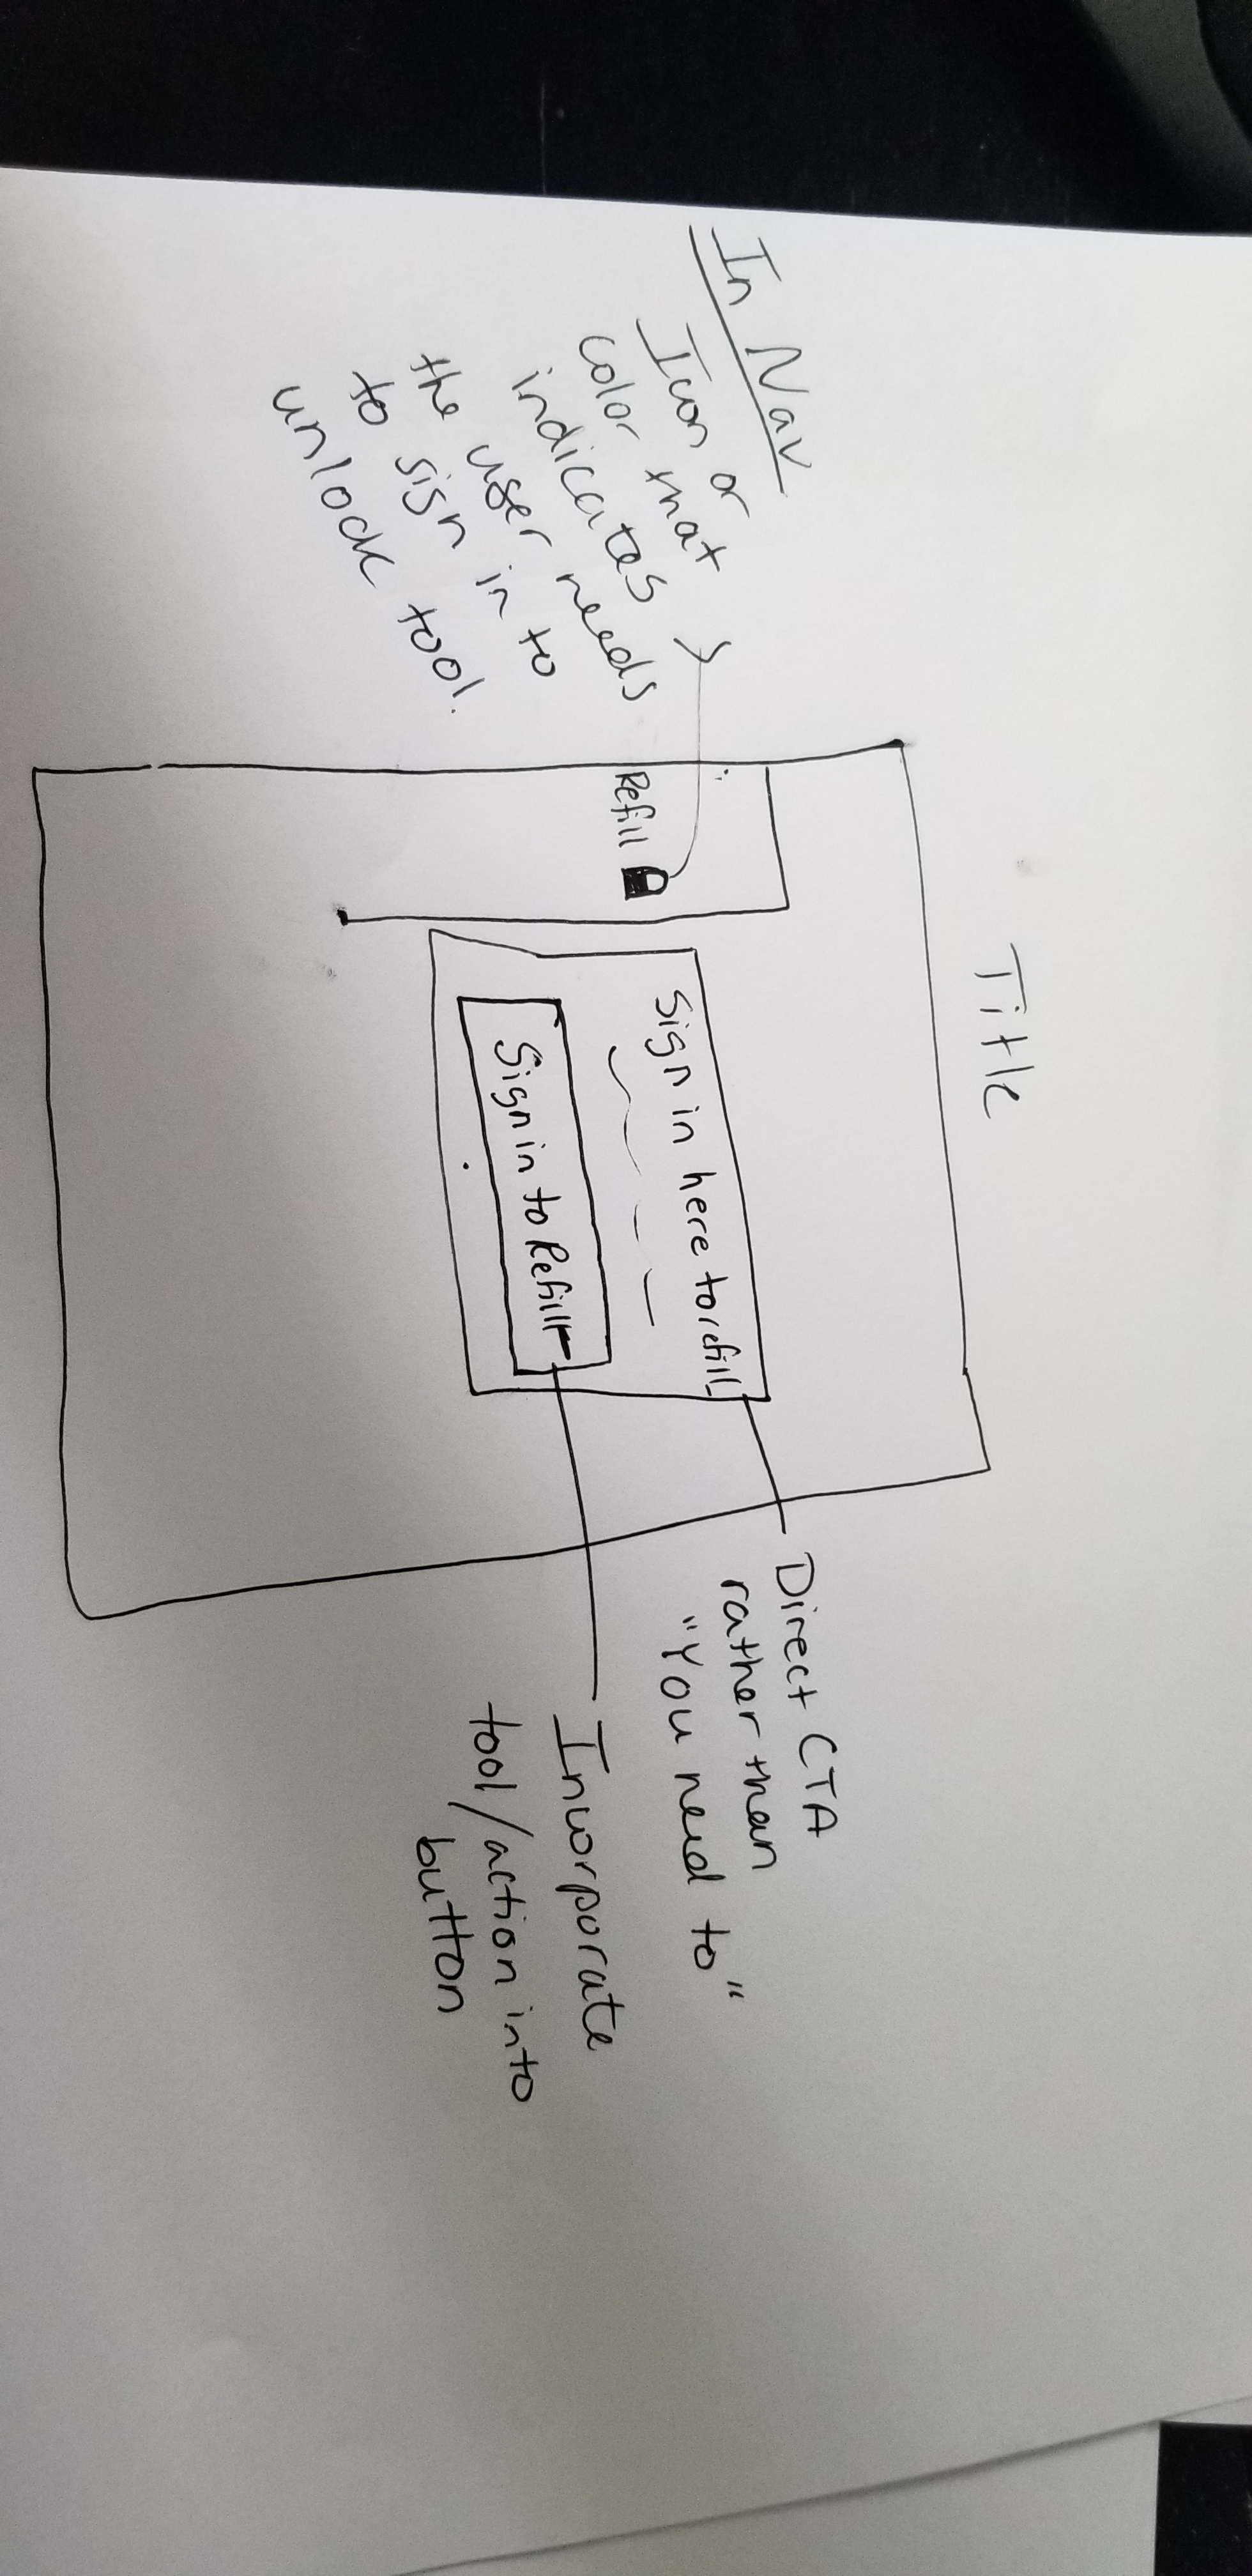 Title
In Nav
Icon or
color that
indicates
the user needs
to sign in to
unlock tool.
Refill
Sign in here to refill
Sign in to Refill
Direct CTA
rather than
"You need to"
Incorporate
tool/action into
button